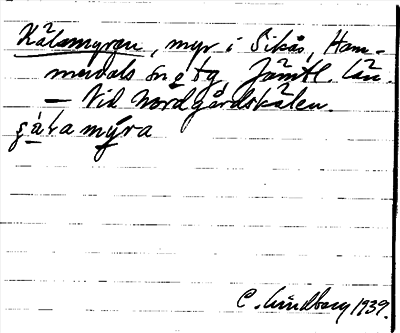 Kälamyran, myr i Sikås, Ham-
merdals sn o tg, Jämtl. län.
— Vid Nordgårdskälen.
mýra
C. Lindberg 1939.